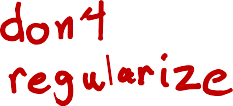 don4
regularize